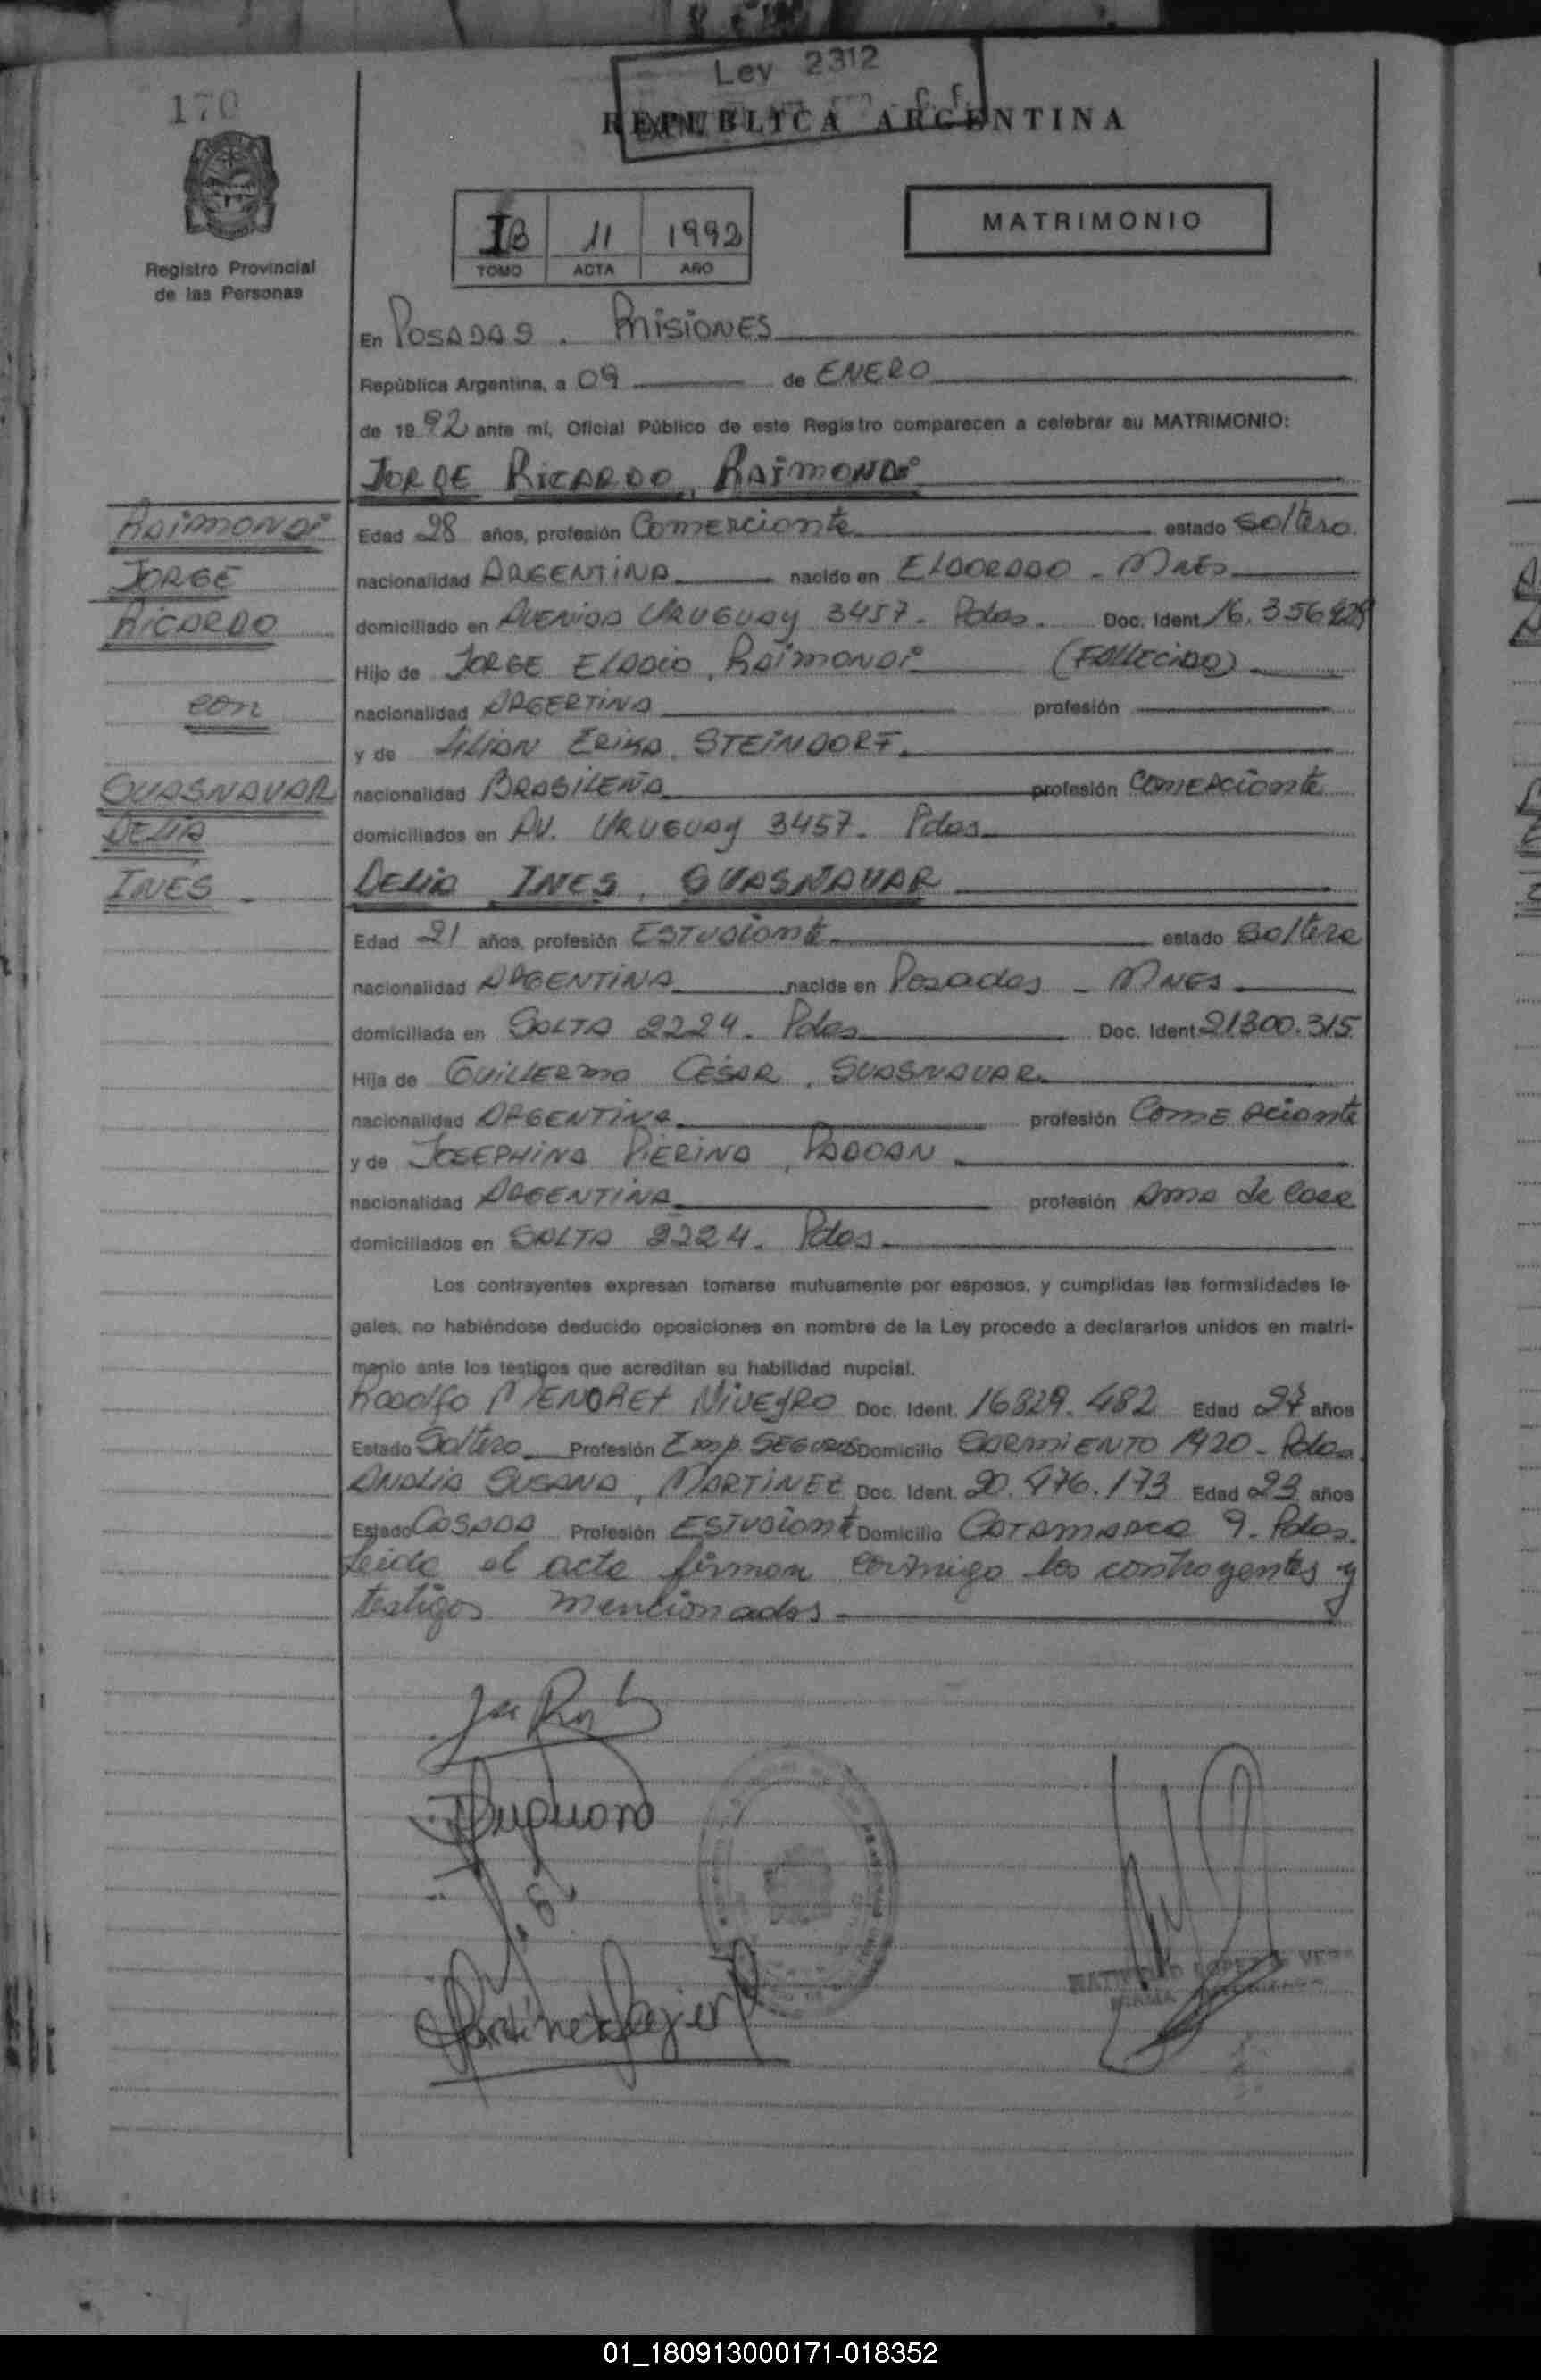 170
Ley 2312
REPUBLICA ARGENTINA
IB 11 1992
TOMO ACTA AÑO
MATRIMONIO
Registro Provincial
de las Personas
En POSADAS. MISIONES
República Argentina, a 09 de ENERO
de 1992 ante mí, Oficial Público de este Registro comparecen a celebrar su MATRIMONIO:
JORGE RICARDO, RAIMONDI
RAIMONDI
JORGE
RICARDO
con
GUASNAVAR
DELIA
INES
Edad 28 años, profesión Comerciante estado Soltero.
nacionalidad ARGENTINA nacido en ELDORADO - MNES
domiciliado en AVENIDA URUGUAY 3457. Pdas. Doc. Ident. 16.356
Hijo de JORGE ELADIO, RAIMONDI (FALLECIDO)
nacionalidad ARGERTINA profesión
y de LILIAN ERIKA, STEINDORF.
nacionalidad BRASILEÑA profesión COMERCIANTE
domiciliados en AV. URUGUAY 3457. Pdas.
DELIA INES, GUASNAVAR
Edad 21 años, profesión ESTUDIANTE estado Soltera
nacionalidad ARGENTINA nacida en Posadas - MNES
domiciliada en SALTA 2224. Pdas Doc. Ident. 21.300.315
Hija de GUILLERMO CESAR, GUASNAVAR.
nacionalidad ARGENTINA profesión COMERCIANTE
y de JOSEPHINA PIERINA, PADOAN
nacionalidad ARGENTINA profesión Ama de Casa
domiciliados en SALTA 2224. Pdas.
Los contrayentes expresan tomarse mutuamente por esposos, y cumplidas las formalidades le-
gales, no habiéndose deducido oposiciones en nombre de la Ley procedo a declararlos unidos en matri-
monio ante los testigos que acreditan su habilidad nupcial.
RODOLFO MENDRET NIVEYRO Doc. Ident. 16.829.482 Edad 27 años
Estado Soltero Profesión Emp. SEGUROS Domicilio SARMIENTO 1920 - Pdas.
ANALIA SUSANA, MARTINEZ Doc. Ident. 20.476.173 Edad 23 años
Estado CASADA Profesión ESTUDIANTE Domicilio CATAMARCA 9. Pdas.
Leida el acta firman conmigo los contrayentes y
testigos mencionados
01_180913000171-018352